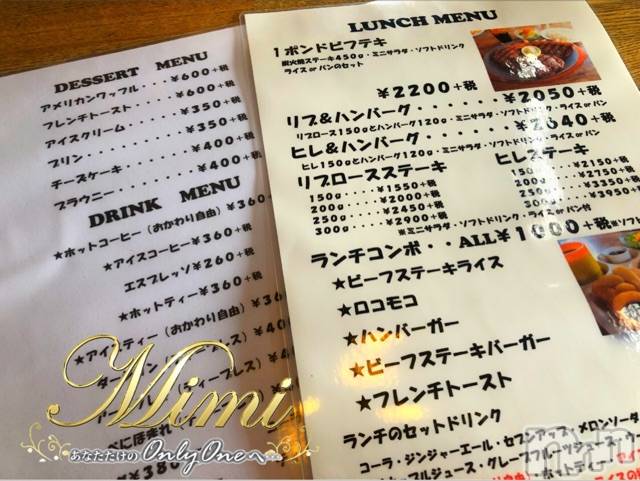 DESSERT MENU
アメリカンワッフル・・・・¥600+税
フレンチトースト・・・・・¥600+税
アイスクリーム・・・・・・¥350+税
プリン・・・・・・・・・・¥350+税
チーズケーキ・・・・・・・¥400+税
ブラウニー・・・・・・・・¥400+税
DRINK MENU
★ホットコーヒー（おかわり自由）¥360+
★アイスコーヒー¥360+税
エスプレッソ¥260+税
★ホットティー¥360+税
（おかわり自由）
LUNCH MENU
1ポンドビフテキ
炭火焼ステーキ450g・ミニサラダ・ソフトドリンク
ライス or パンのセット
¥2200+税
リブ&ハンバーグ・・・・・・¥2050+税
リブロース150gとハンバーグ120g・ミニサラダ・ソフトドリンク・ライス or パン
ヒレ&ハンバーグ・・・・・・¥2640+税
ヒレ150gとハンバーグ120g・ミニサラダ・ソフトドリンク・ライス or パン
リブロースステーキ
150g・・・¥1550+税
200g・・・¥2000+税
250g・・・¥2450+税
300g・・・¥2900+税
ヒレステーキ
150g・・・¥2150+税
200g・・・¥2750+税
250g・・・¥3350+税
300g・・・¥3950+
※ミニサラダ・ソフトドリンク・ライス or パン付
ランチコンボ・・ALL¥1000+税
★ビーフステーキライス
★ロコモコ
★ハンバーガー
★ビーフステーキバーガー
★フレンチトースト
ランチのセットドリンク
コーラ・ジンジャーエール・セブンアップ・メロンソーダ
Mimi
あなただけの OnlyOneへ…